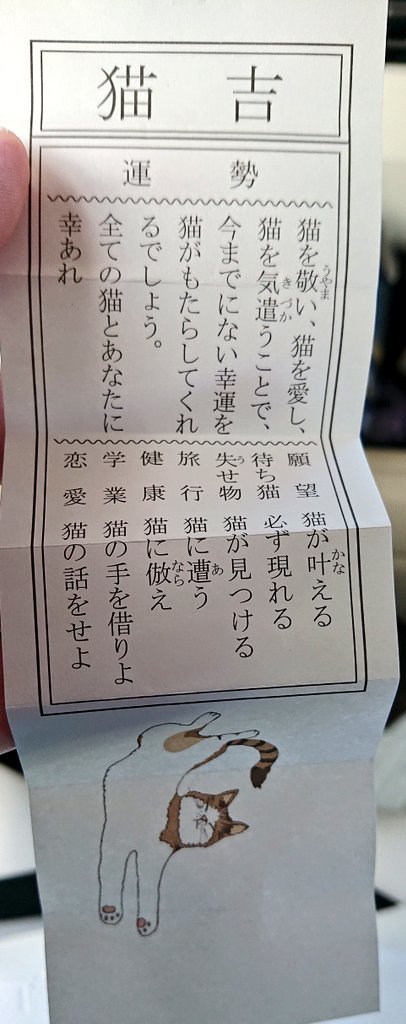 猫吉
運勢
猫を敬い、猫を愛し、
猫を気遣うことで、
今までにない幸運を
猫がもたらしてくれ
るでしょう。
全ての猫とあなたに
幸あれ
うやま
きづか
願望 猫が叶える
かな
待ち猫 必ず現れる
失せ物 猫が見つける
う
旅行 猫に遭う
あ
健康 猫に倣え
なら
学業 猫の手を借りよ
恋愛 猫の話をせよ